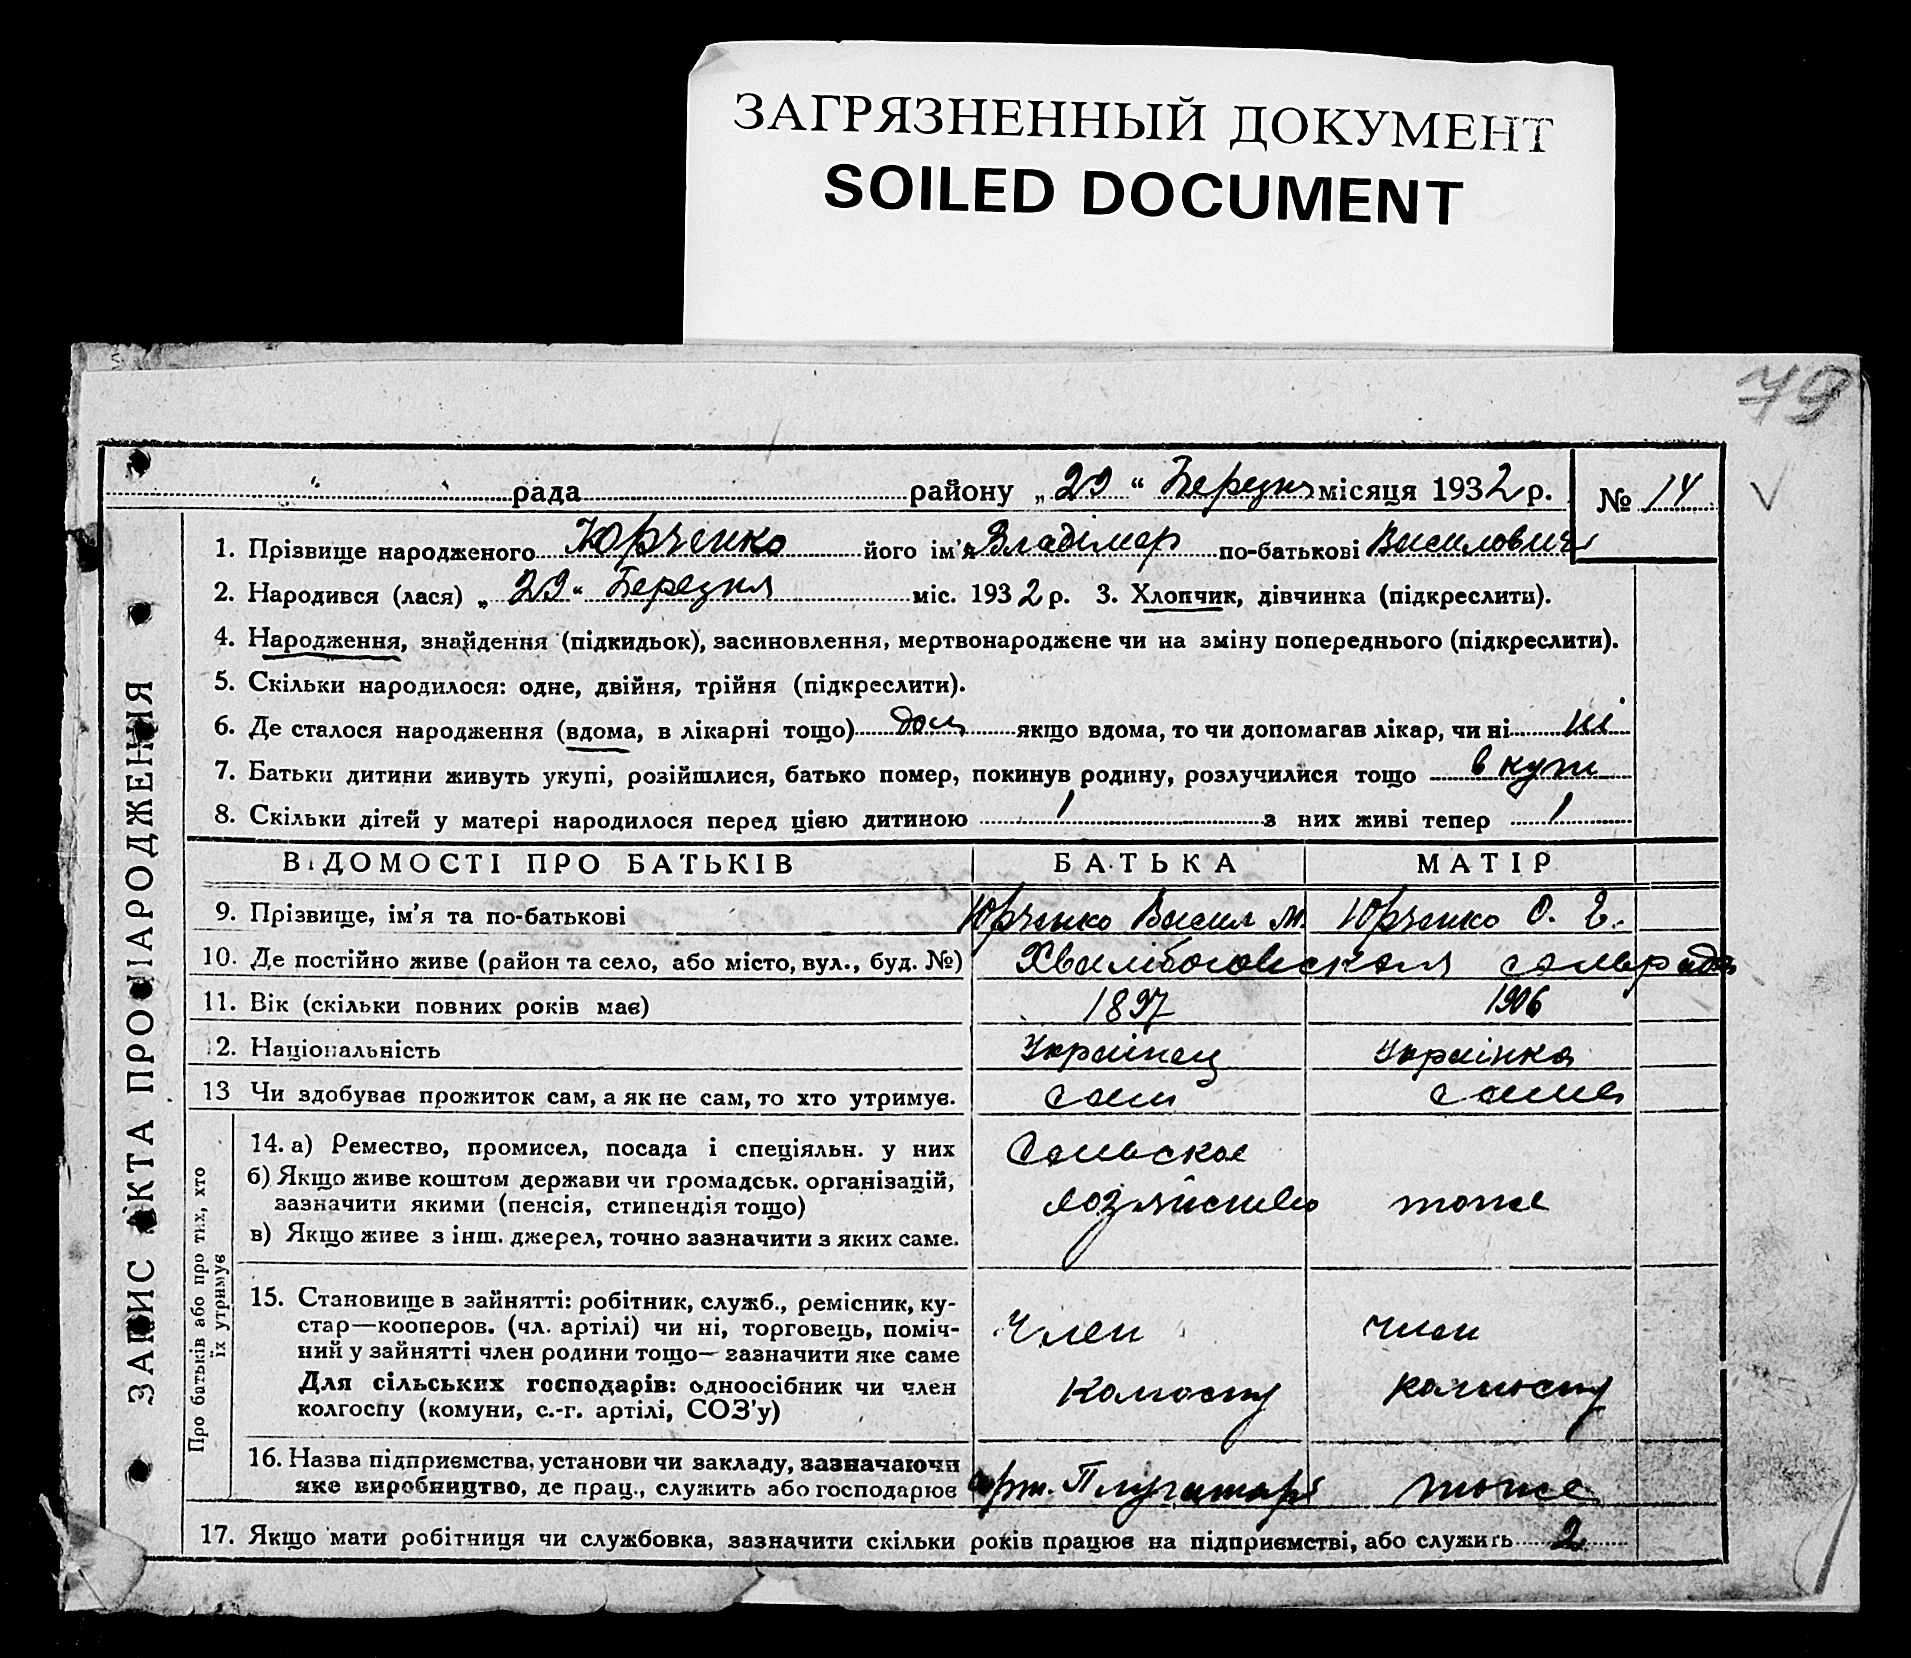 ЗАГРЯЗНЕННЫЙ ДОКУМЕНТ
SOILED DOCUMENT
79
рада районu „29“ Березня місяця 1932 р. № 14
1. Прізвище народженого Юрченко його ім'я Владімир по-батькові Василович
2. Народився (лася) „29“ Березня міс. 1932 р. 3. Хлопчик, дівчинка (підкреслити).
4. Народження, знайдення (підкидьок), засиновлення, мертвонароджене чи на зміну попереднього (підкреслити).
5. Скільки народилося: одне, двійня, трійня (підкреслити).
6. Де сталося народження (вдома, в лікарні тощо) дом якщо вдома, то чи допомагав лікар, чи ні ні
7. Батьки дитини живуть укупі, розійшлися, батько помер, покинув родину, розлучилися тощо в купі
8. Скільки дітей у матері народилося перед цією дитиною 1 з них живі тепер 1
ЗАПИС АКТА ПРО НАРОДЖЕННЯ
ВІДОМОСТІ ПРО БАТЬКІВ БАТЬКА МАТІР
9. Прізвище, ім'я та по-батькові Юрченко Васил М. Юрченко О. Г.
10. Де постійно живе (район та село, або місто, вул., буд. №) Хвалібоговская сельрада
11. Вік (скільки повних років має) 1897 1906
12. Національність Украінец Украінка
13 Чи здобуває прожиток сам, а як не сам, то хто утримує. сам сама
Про батьків або про тих, хто
їх утримує
14. а) Ремество, промисел, посада і спеціяльн. у них Сельское
б) Якщо живе коштом держави чи громадськ. організацій,
зазначити якими (пенсія, стипендія тощо) хозяйство тоже
в) Якщо живе з інш. джерел, точно зазначити з яких саме.
15. Становище в зайнятті: робітник, служб., ремісник, ку-
стар—кооперов. (чл. артілі) чи ні, торговець, поміч- Член член
ний у зайнятті член родини тощо—зазначити яке саме
Для сільських господарів: одноосібник чи член колгоспу колгоспу
колгоспу (комуни, с.-г. артілі, СОЗ'у)
16. Назва підприємства, установи чи закладу, зазначаючи
яке виробництво, де прац., служить або господарює арт. Плугатарь тоже
17. Якщо мати робітниця чи службовка, зазначити скільки років працює на підприємстві, або служить 2